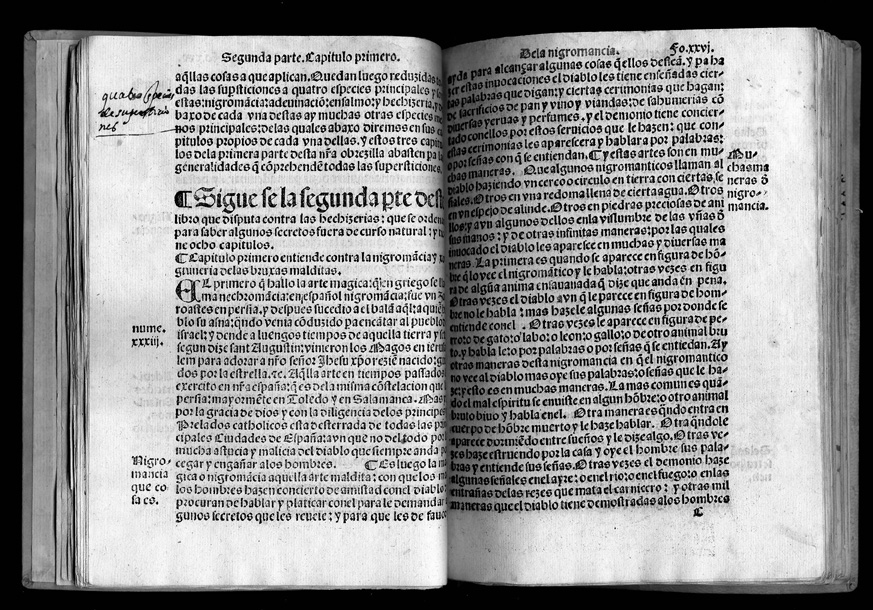 Segunda parte. Capitulo primero.
aq̃llas cosas a que aplican. Quedan luego reduzidas to
das las supsticiones a quatro especies principales y s
estas: nigromãcia: adeuinació: ensalmo: y hechizeria, y de
baxo de cada vna destas ay muchas otras especies me
nos principales: delas quales abaxo diremos en sus ca
pitulos propios de cada vna dellas. y estos tres capitu
los dela primera parte desta nr̃a obrezilla abasten pa la
generalidades q̃ cõprehendẽ todas las supersticiones.
quales especies
de supersticio
nes
¶ Sigue se la segunda pte dest
libro que disputa contra las hechizerias: que se ordena
para saber algunos secretos fuera de curso natural: y tie
ne ocho capitulos.
¶ Capitulo primero entiende contra la nigromãcia y xo
guineria delas bruxas malditas.
EL primero q̃ hallo la arte magica: q̃ en griego se lla
ma nechromãcia: en español nigromãcia: fue vn zo
roastes en persia, y despues sucedio a el balaã: al q̃ quiẽ
blo su asna: q̃ndo venia cõduzido pa encãtar al pueblo
israel: y dende a luengos tiempos de aquella tierra y s
segun dize sant Augustin: vinieron los Magos en ieru
lem para adorar a nr̃o señor Jhesu xp̃o rezie nacido: gui
dos por la estrella. ⁊c. Aq̃lla arte en tiempos passados
exercito en nr̃a españa: q̃ es dela misma cõstelacion que
persia: mayormẽte en Toledo y en Salamanca. Mas
por la gracia de dios y con la diligencia delos principes
Prelados catholicos esta desterrada de todas las prin
cipales Ciudades de España: avn que no del todo por
mucha astucia y malicia del diablo que siempre anda p
cegar y engañar alos hombres. ¶ Es luego la ma
gica o nigromãcia aquella arte maldita: con que los ma
los hombres hazen concierto de amistad conel diablo:
procuran de hablar y platicar conel para le demandar
gunos secretos que les reuele: y para que les de fauor
nume.
xxxiij.
Nigro-
mancia
que co
sa es.
Dela nigromancia. Fo. xxvj.
ayda para alcançar algunas cosas q̃ ellos desseã. y pa ha
zer estas inuocaciones el diablo les tiene enseñadas cier-
tas palabras que digan: y ciertas cerimonias que hagan:
de sacrificios de pan y vino y viandas: de sahumerias cõ
diuersas yeruas y perfumes. y el demonio tiene concier-
tado conellos por estos seruicios que le hazen: que con-
estas cerimonias les aparescera y hablara por palabras:
o por señas con q̃ se entiendan. ¶ y estas artes son en mu-
chas maneras. Que algunos nigromanticos llaman al
diablo haziendo vn cerco o circulo en tierra con ciertas, se
ñales. Otros en vna redoma llena de cierta agua. Otros
en vn espejo de alinde. Otros en piedras preciosas de ani
llos: y avn algunos dellos en la vislumbre de las vñas ð
sus manos: y de otras infinitas maneras: por las quales
inuocado el diablo les aparesce en muchas y diuersas ma
neras. La primera es quando se aparece en figura de hõ-
bre q̃ lo vee el nigromãtico y le habla: otras vezes en figu
ra de algũa anima ensauanada q̃ dize que anda en pena.
Otras vezes el diablo avn q̃ le parece en figura de hom-
bre no le habla: mas hazele algunas señas por donde se
entiende conel. Otras vezes le aparece en figura de pe-
rro: o de gato: o lobo: o leon: o gallo: o de otro animal bru
to. y habla le: o por palabras o por señas q̃ se entiedan. Ay
otras maneras desta nigromancia en q̃ el nigromantico
no vee al diablo mas oye sus palabras: o señas que le ha-
ze: y esto es en muchas maneras. La mas comun es quã-
do el mal espiritu se enuiste en algun hõbre: o otro animal
bruto biuo y habla enel. Otra manera es q̃ndo entra en
cuerpo de hõbre muerto y le haze hablar. Otra q̃ndo le
aparece dormiẽdo entre sueños y le dize algo. Otras ve-
zes haze estruendo por la casa y oye el hombre sus pala-
bras y entiende sus señas. Otras vezes el demonio haze
algunas señales enel ayre: o enel rio: o enel fuego: o enlas
entrañas delas reses que mata el carnicero: y otras mil
maneras que el diablo tiene demostradas alos hombres
Mu-
chas ma
neras ð
nigro-
mancia.
C